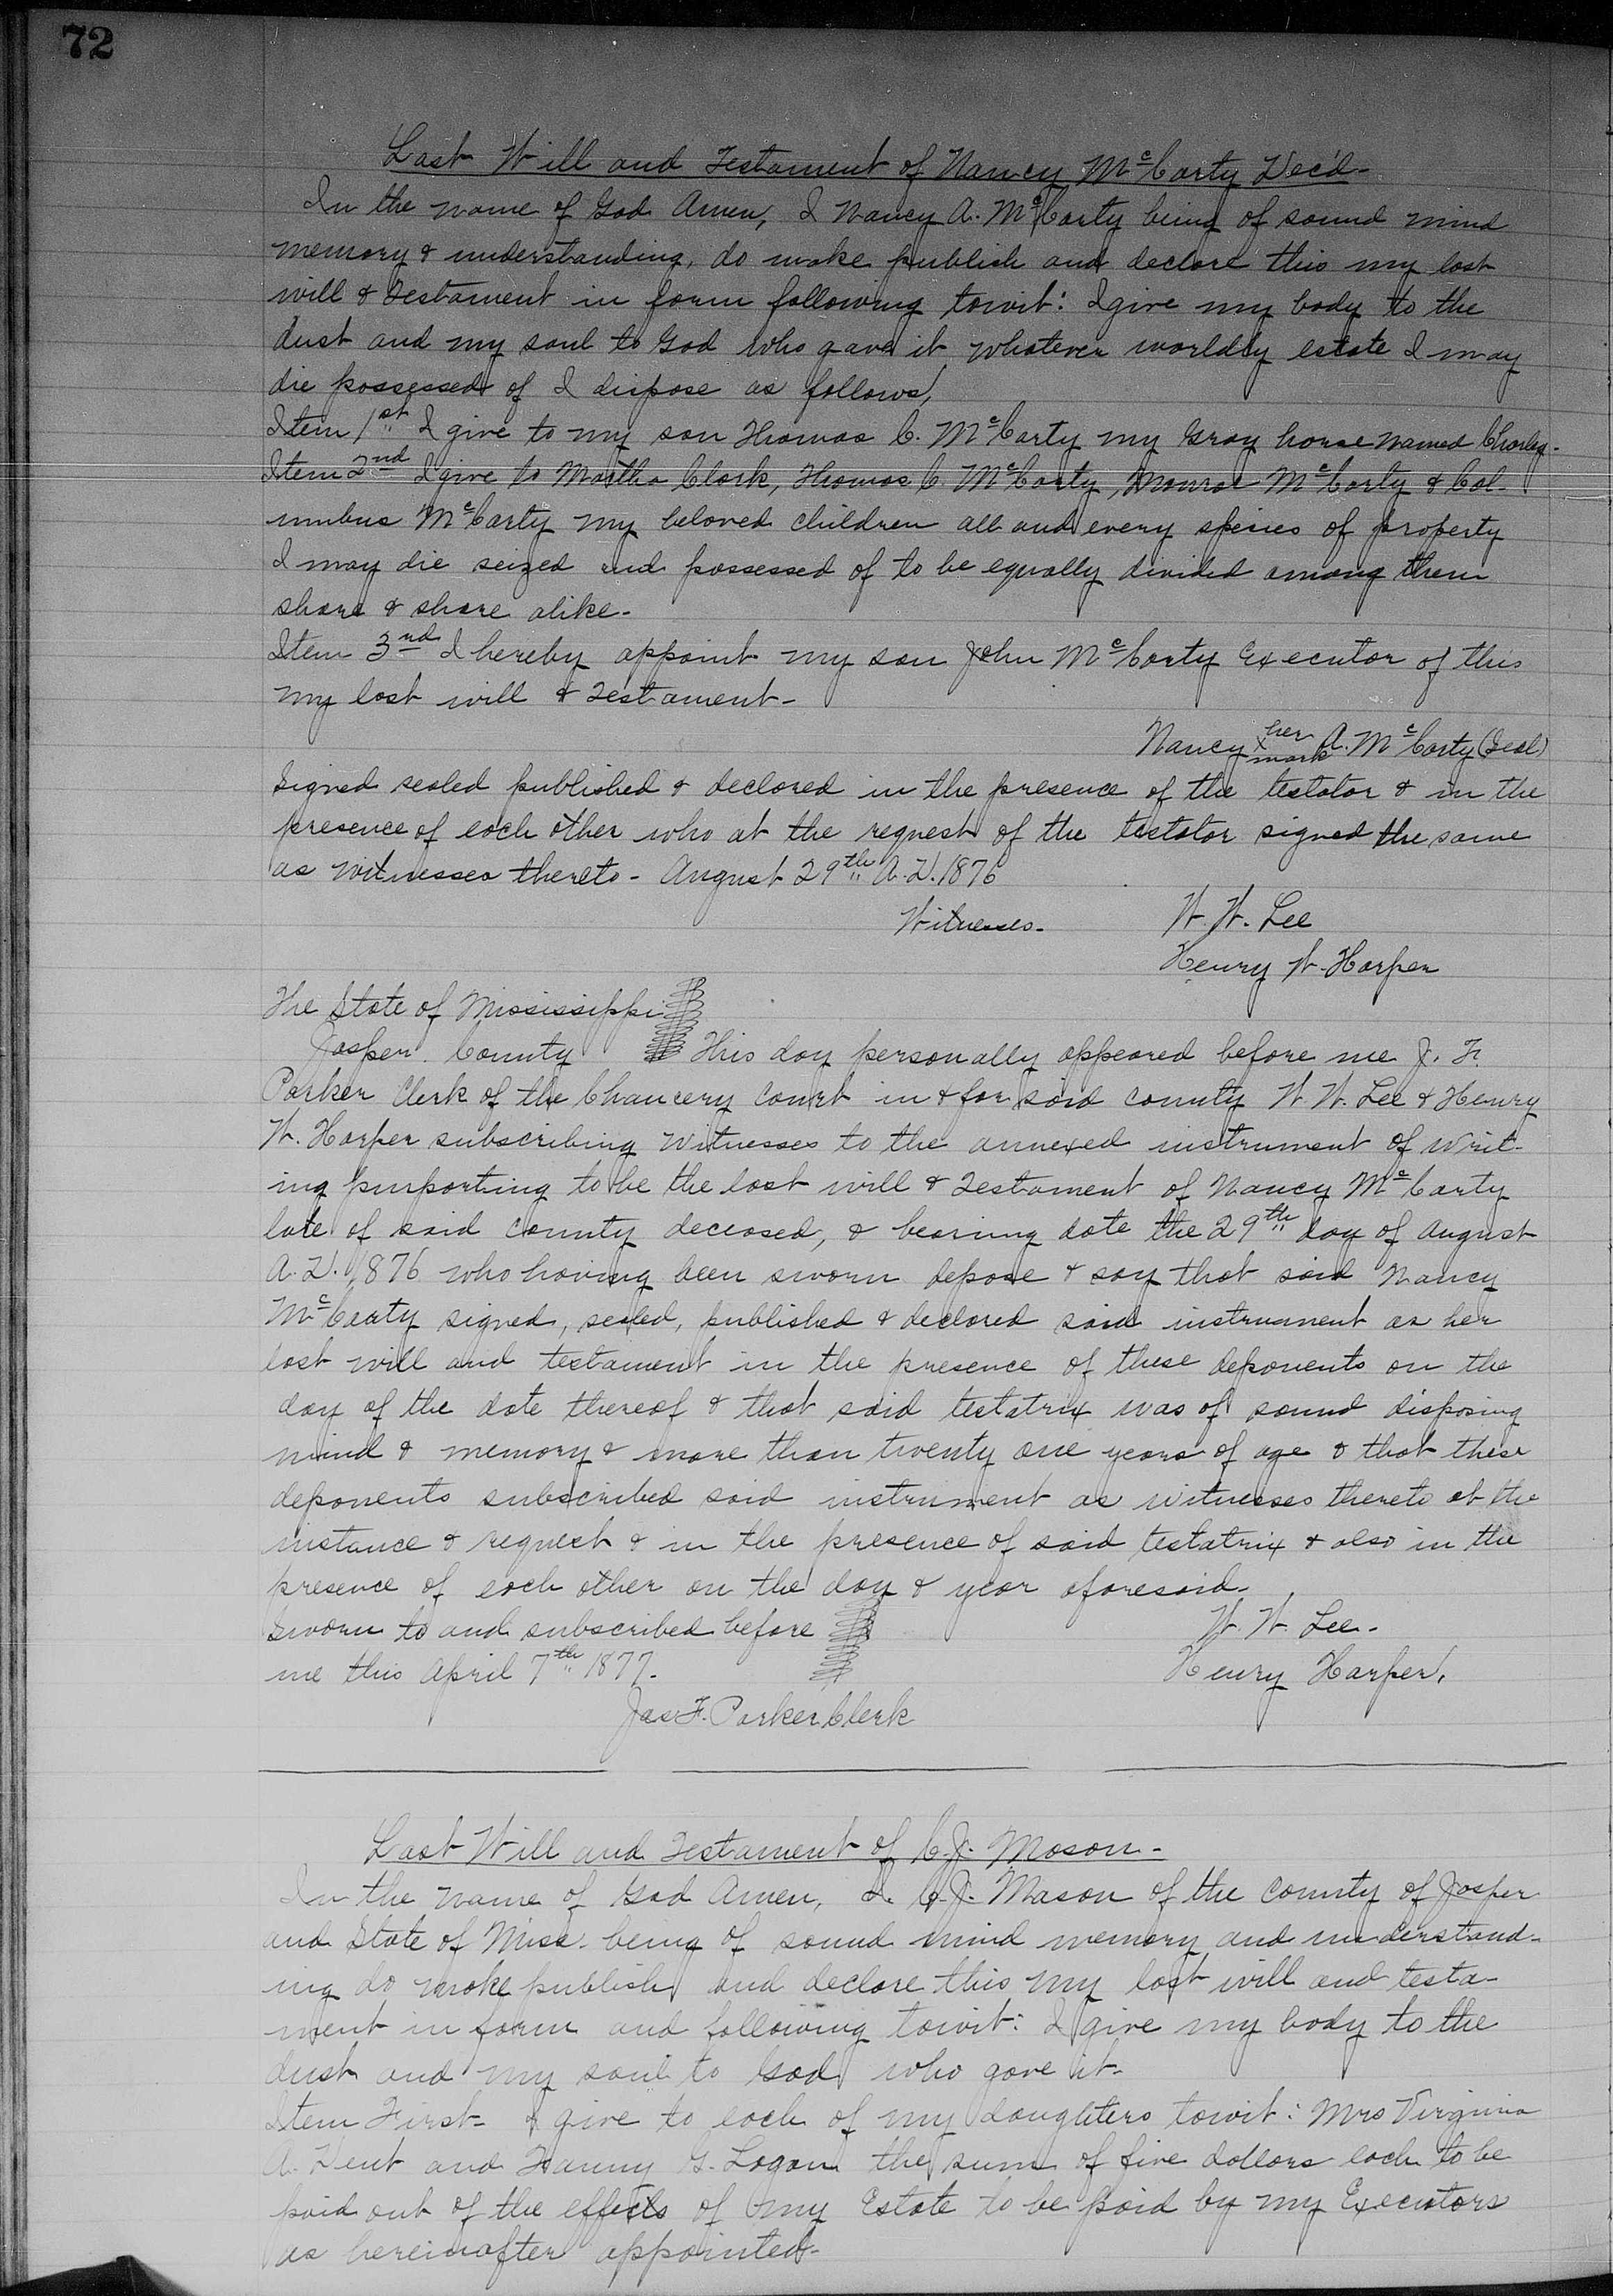 72
Last Will and Testament of Nancy McCarty Dec'd-
In the name of God Amen, I Nancy A. McCarty being of sound mind
memory & understanding, do make publish and declare this my last
will & Testament in form following towit: I give my body to the
dust and my soul to God who gave it whatever worldly estate I may
die possessed of I dispose as follows,
Item 1st I give to my son Thomas C. McCarty my Gray horse named Charley-
Item 2nd I give to Martha Clark, Thomas C. McCarty, Monroe McCarty & Col-
umbus McCarty my beloved children all and every species of property
I may die seized and possessed of to be equally divided among them
share & share alike-
Item 3nd I hereby appoint my son John McCarty Executor of this
my last will & Testament-
Nancy her x mark A. McCarty (Seal)
Signed sealed published & declared in the presence of the testator & in the
presence of each other who at the request of the testator signed the same
as witnesses thereto- August 29th A.D. 1876
Witnesses- W. W. Lee
Henry W. Harper
The State of Mississippi
Jasper County This day personally appeared before me J. F.
Parker Clerk of the Chancery Court in & for said county W. W. Lee & Henry
W. Harper subscribing witnesses to the annexed instrument of writ-
ing purporting to be the last will & Testament of Nancy McCarty
late of said county deceased, & bearing date the 29th day of August
A.D. 1876 who having been sworn depose & say that said Nancy
McCarty signed, sealed, published & declared said instrument as her
last will and testament in the presence of these deponents on the
day of the date thereof & that said testatrix was of sound disposing
mind & memory & more than twenty one years of age & that these
deponents subscribed said instrument as witnesses thereto at the
instance & request & in the presence of said testatrix & also in the
presence of each other on the day & year aforesaid-
Sworn to and subscribed before W. W. Lee-
me this April 7th 1877. Henry Harper.
Jas F. Parker Clerk
Last Will and Testament of C. J. Mason-
In the name of God Amen, I. C. J. Mason of the County of Jasper
and State of Miss. being of sound mind memory and understand-
ing do make publish and declare this my last will and testa-
ment in form and following towit: I give my body to the
dust and my soul to God who gave it-
Item First- I give to each of my daughters towit: Mrs Virginia
A. Dent and Fanny G. Logan the sum of five dollars each to be
paid out of the effects of my Estate to be paid by my Executors
as hereinafter appointed-